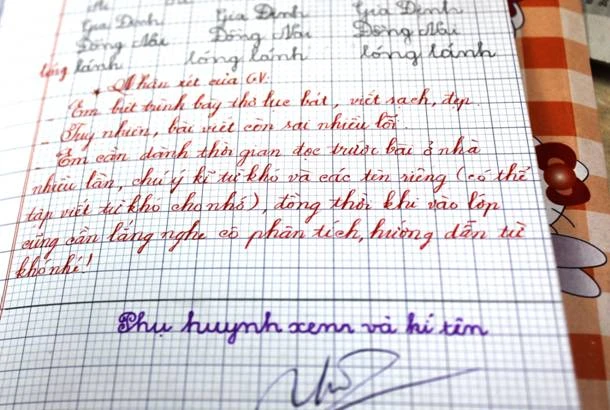 Gia Định Gia Định Gia Định
Đồng Nai Đồng Nai Đồng Nai
lóng lánh lóng lánh lóng lánh
* Nhận xét của GV:
- Em biết trình bày thơ lục bát, viết sạch, đẹp.
- Tuy nhiên, bài viết còn sai nhiều lỗi.
- Em cần dành thời gian đọc trước bài ở nhà
nhiều lần, chú ý kĩ từ khó và các tên riêng (có thể
tập viết từ khó cho nhớ), đồng thời khi vào lớp
cũng cần lắng nghe cô phân tích, hướng dẫn từ
khó nhé!
Phụ huynh xem và kí tên